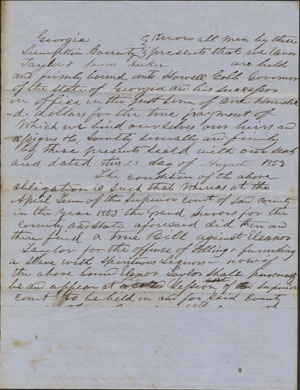 Georgia } Know all men by these
Lumpkin County } presents that we Elenor
Taylor & James Parker are held
and firmly bound unto Howell Cobb Governor
of the State of Georgia and his successors
in office in the just sum of one Hundre
d. dollars for the true payment of
Which we bind ourselves our heirs an
signs &c, Jointly severally and firmly
by these presents Seald with our seals
and dated this 23 day of August 1853
The condition of the above
obligation is such that Whereas at the
April Term of the Superior court of said county
in the Year 1853 the Grand Jurors for the
County and State aforesaid did then an
there find a True Bill against Elenor
Taylor for the offence of selling & furnishing
a Slave with Spirituous Liquors — now if
the above bound Elenor Taylor shall personally
be and appear at Session of the Superior
court to be held in and for said County